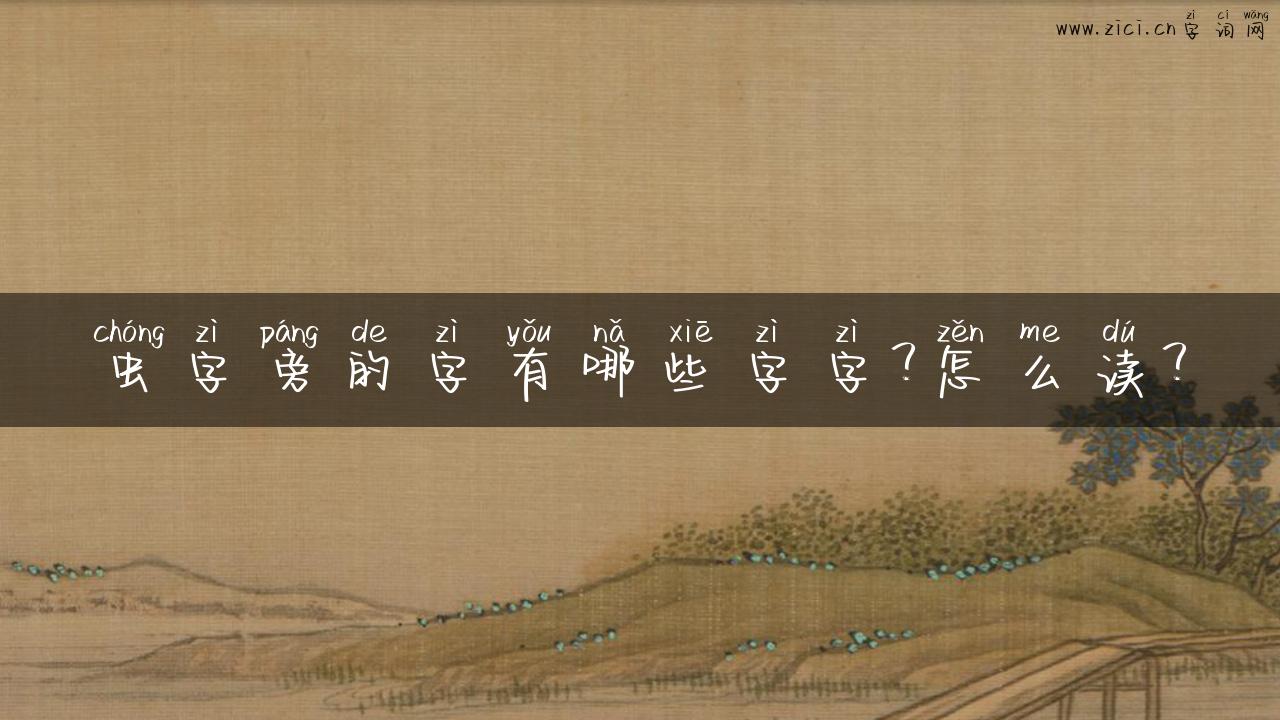 zì cí wǎng
www.zici.cn字词网
chóng zì páng de zì yǒu nǎ xiē zì zì zěn me dú
虫字旁的字有哪些字字?怎么读?